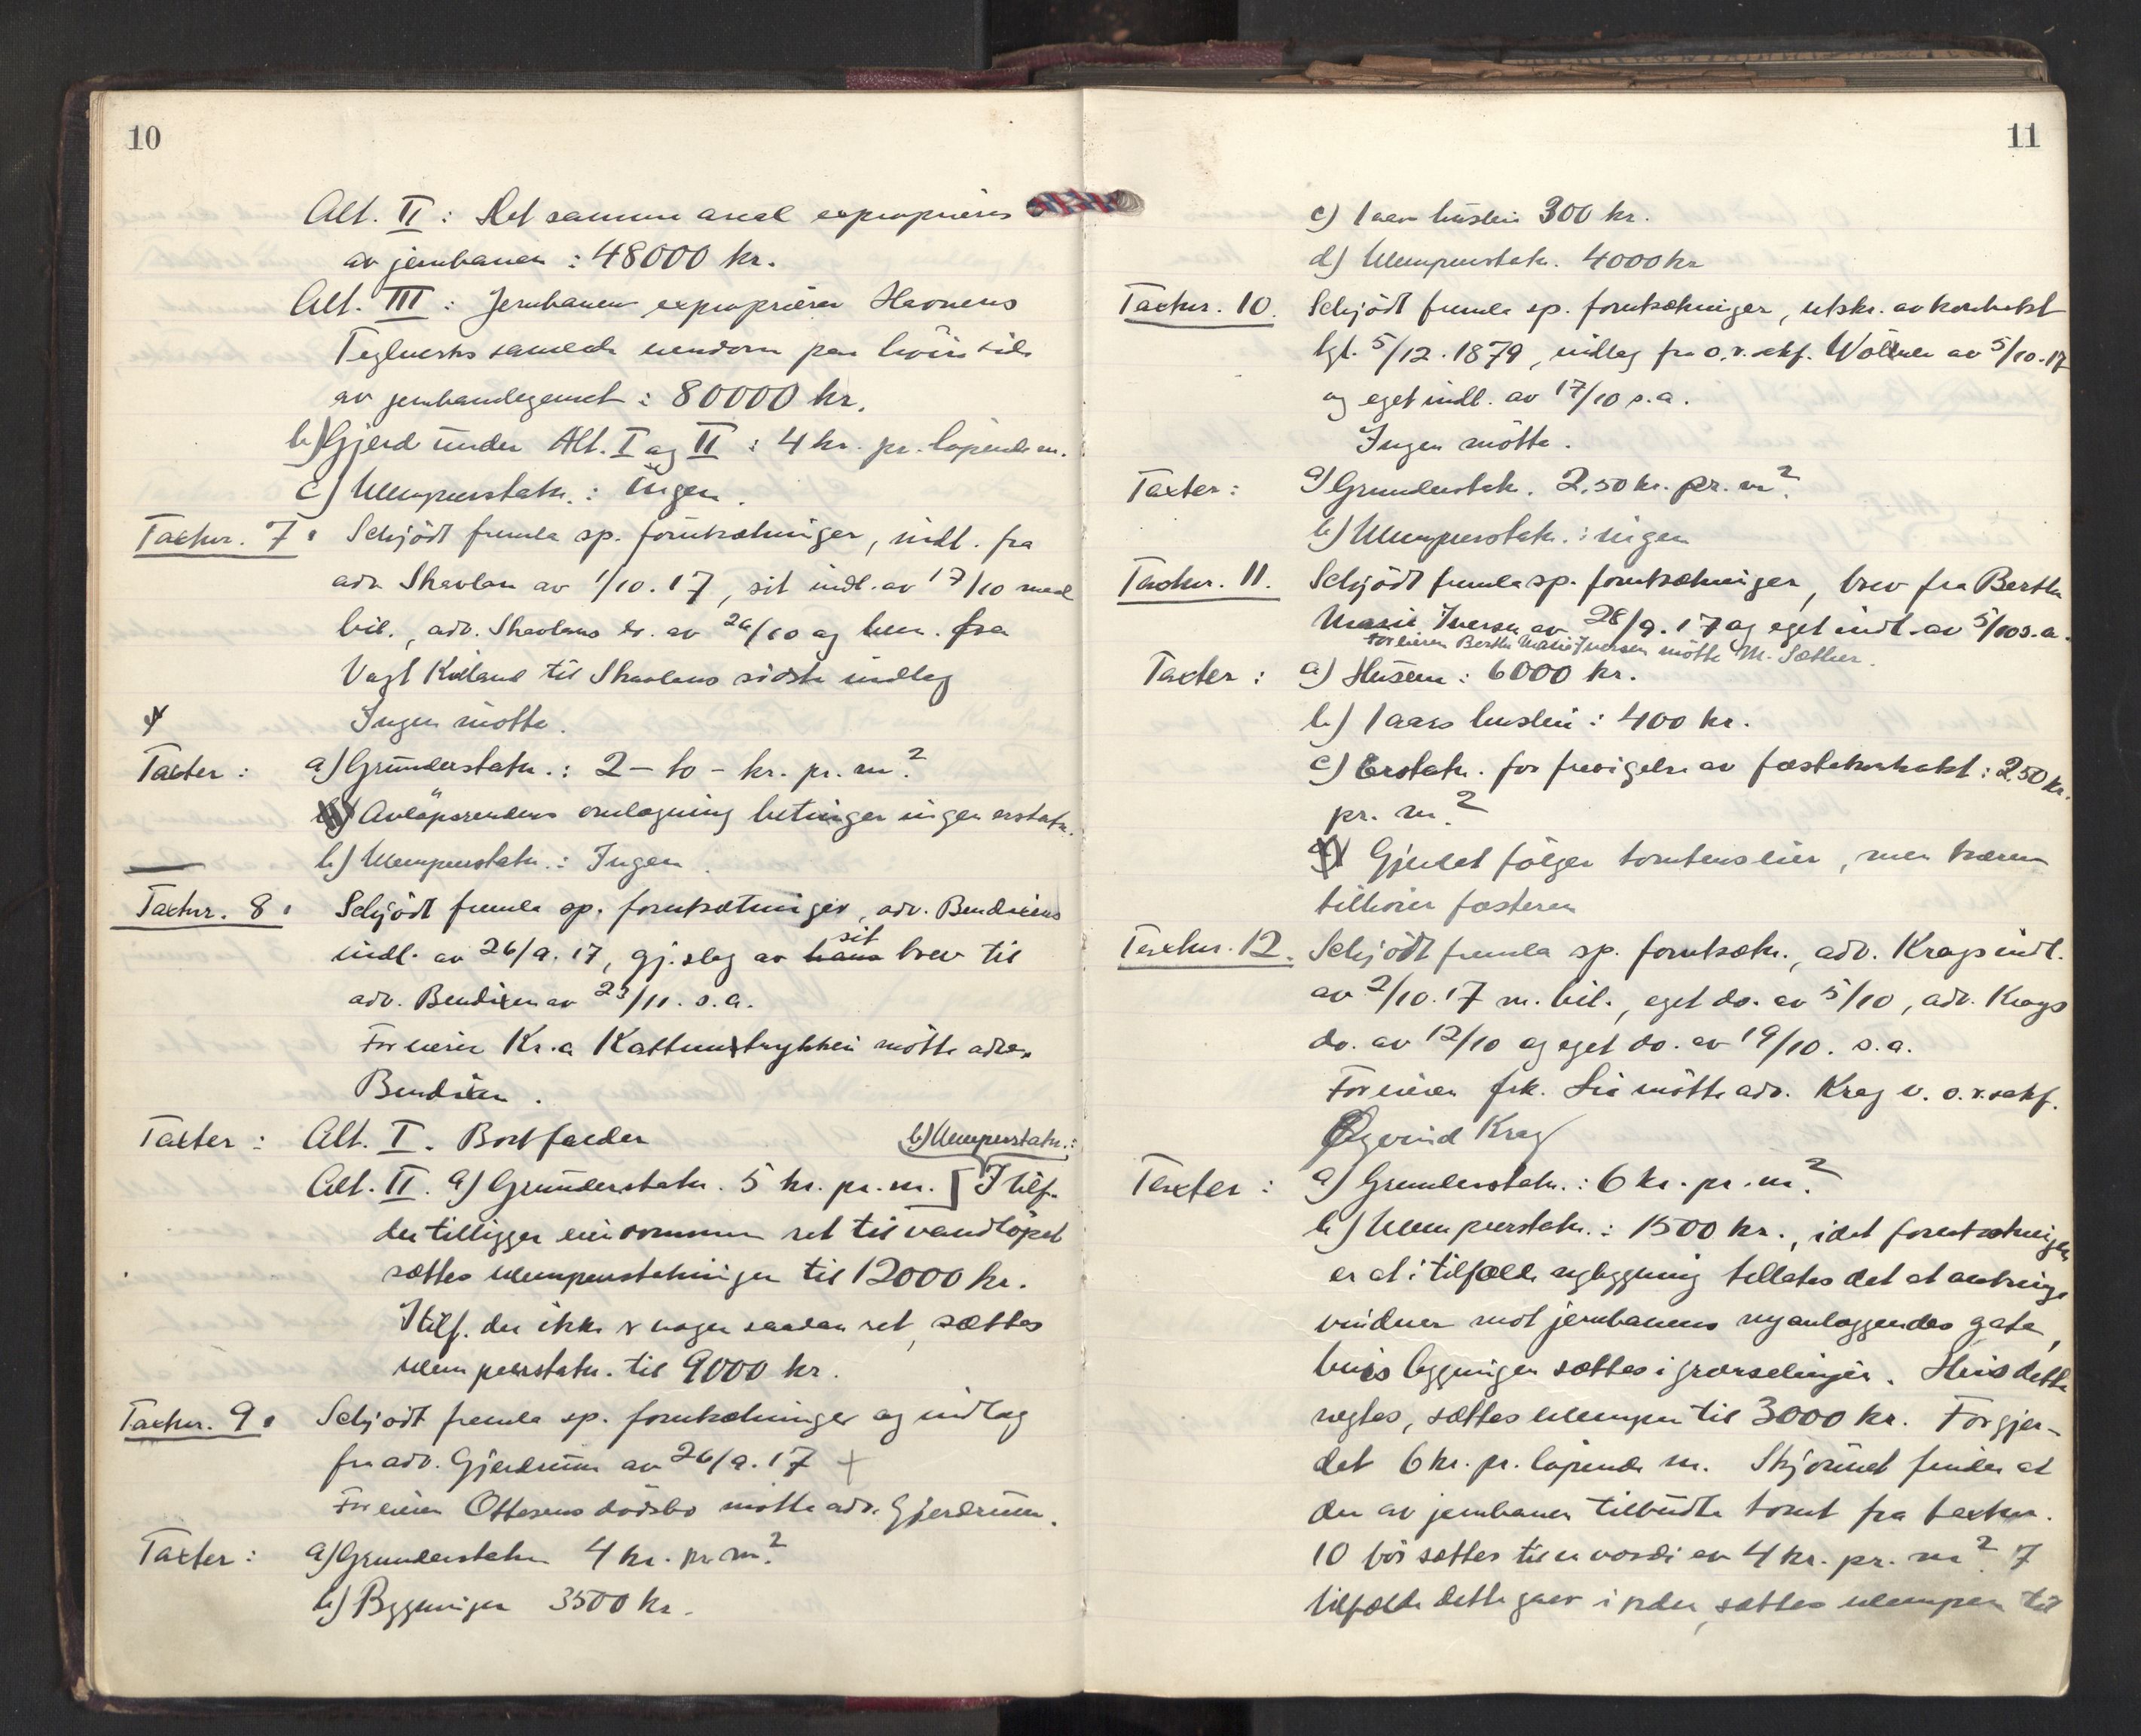 10
Alt. II : Det samme areal exproprieres
av jernbanen : 48000 kr.
Alt. III : Jernbanen exproprierer Havnens
Teglverks samlede eiendom paa høire side
av jernbanelegemet : 80000 kr.
b) Gjerd under Alt. I og II : 4 kr. pr. løpende m.
c) Ulempeerstatn. : Ingen.
Taxtnr. 7. Schjödt fremla sp. forutsætninger, indl. fra
adv. Skavlan av 1/10.17, sit indl. av 17/10 med
bil., adv. Skavlans av 26/10 og fra
Vogt Kielland til Skavlans sidste indlæg
Ingen møtte.
Taxter : a) Grunderstatn. : 2 – to – kr. pr. m²
Avløpsrendens omlægning betinger ingen erstatn.
b) Ulempeerstatn. : Ingen.
Taxtnr. 8. Schjödt fremla sp. forutsætninger, adv. Bendixens
indl. av 26/9.17, gj.slag av hans sit brev til
adv. Bendixen av 23/11. s.a.
For eieren Kr.a Kattuntrykkeri møtte adv.
Bendixen.
Taxter : Alt. I. Bortfalder
b) Ulempeerstatn. :
Alt. II. a) Grunderstatn. 5 kr. pr. m. I tilf.
der tilligger eiendommen ret til vandløpet
sættes ulempeerstatningen til 12000 kr.
I tilf. der ikke er nogen saadan ret, sættes
ulempeerstatn. til 9000 kr.
Taxtnr. 9. Schjødt fremla sp. forutsætninger og indlæg
fra adv. Gjerdrum av 26/9.17 +
For eieren Ottesens dødsbo møtte adv. Gjerdrum.
Taxter : a) Grunderstatn 4 kr. pr. m²
b) Bygninger 3500 kr.
11
c) 1 aars husleie 300 kr.
d) Ulempeerstatn. 4000 kr
Taxtnr. 10. Schjödt fremla sp. forutsætninger, utskr. av kontrakt
tgl. 5/12.1879, indlæg fra o.r.sakf. av 5/10.17
og eget indl. av 17/10 s.a.
Ingen møtte.
Taxter : a) Grunderstatn. 2.50 kr. pr. m²
b) Ulempeerstatn. : ingen
Taxtnr. 11. Schjödt fremla sp. forutsætninger, brev fra Berthe
Marie Iversen av 28/9.17 og eget indl. av 5/10 s.a.
For eieren Berthe Marie Iversen møtte M. Sæther.
Taxter : a) Husene : 6000 kr.
b) 1 aars husleie : 400 kr.
c) Erstatn. for fravigelse av fæstekontrakt : 2.50 kr.
pr. m²
Gjerdet følger tomtens eier, men trærne
tilhører fæsteren
Taxtnr. 12. Schjödt fremla sp. forutsætn., adv. Krags indl.
av 2/10.17 m. bil., eget do. av 5/10, adv. Krags
do. av 12/10 og eget do. av 19/10. s.a.
For eieren frk. Lie møtte adv. Krag v. o.r.sakf.
Øyvind Krag
Taxter : a) Grunderstatn. : 6 kr. pr. m²
b) Ulempeerstatn. : 1500 kr., idet forutsætningen
er at i tilfælde nybygning tillates det at anbringe
vinduer mot jernbanens nyanlæggendes gate,
hvis bygningen sættes i grænselinjen. Hvis dette
nægtes, sættes ulempen til 3000 kr. For gjer-
det 6 kr. pr. løpende m. Skjønnet finder at
den av jernbanen tilbudte tomt fra taxtnr.
10 bør sættes til en værdi av 4 kr. pr. m² I
tilfælde dette gaar i orden, sættes ulempen til